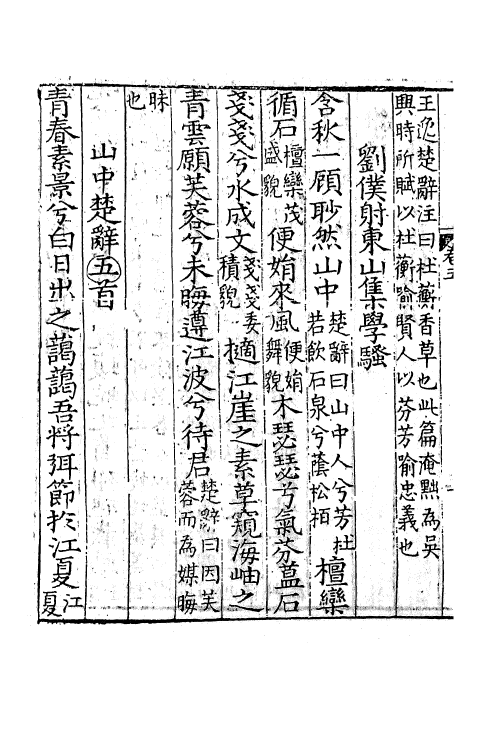 王逸楚辭注曰杜蘅香草也此篇淹黜為吳
興時所賦以杜蘅喻賢人以芬芳喻忠義也
劉僕射東山集學騷
含秋一顧眇然山中楚辭曰山中人兮芳杜若飲石泉兮蔭松柏檀欒
循石檀欒茂盛貌便娟來風便娟舞貌木瑟瑟兮氣芬蒀石
戔戔兮水成文戔戔委積貌擿江崖之素草窺海岫之
青雲願芙蓉兮未晦遵江波兮待君楚辭曰因芙蓉而為媒晦
昧也
山中楚辭五首
青春素景兮白日出之藹藹吾將弭節於江夏江夏